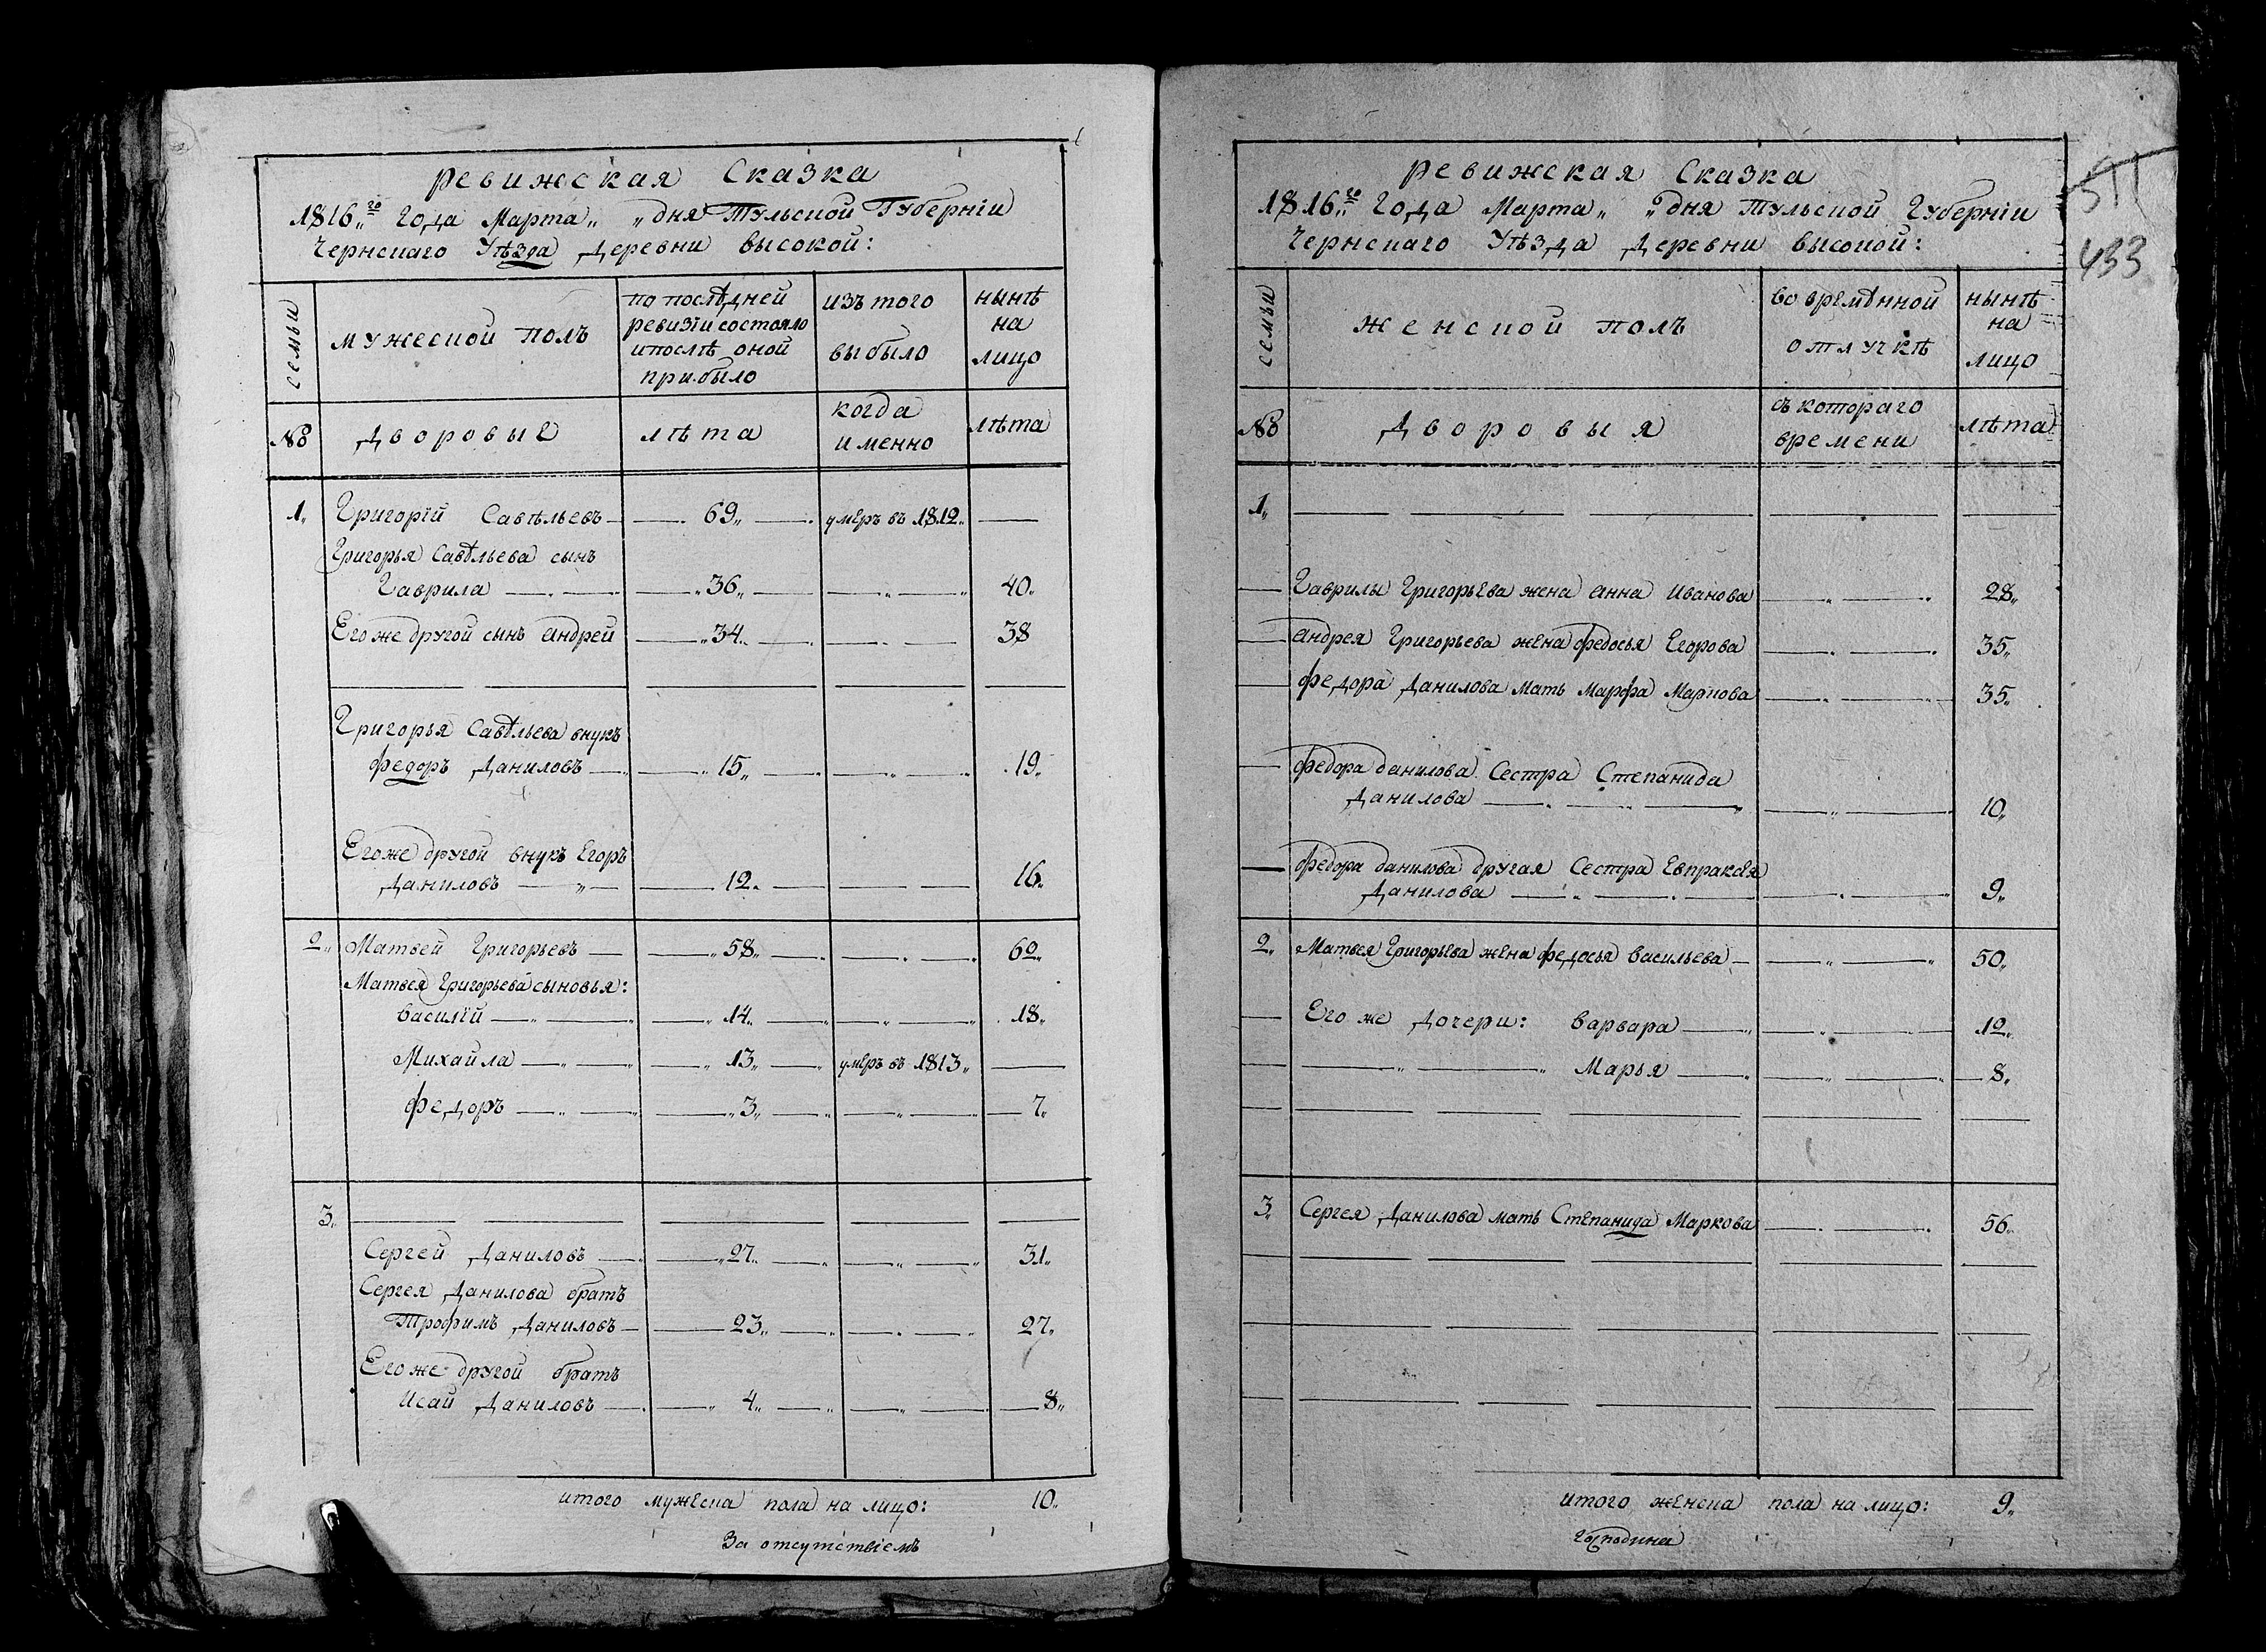 ревижская Сказка
1816„го Года Марта„ „дня Тульской Губернiи
Чернскаго Уѣзда Деревни высокой:
семьи
мужескои полъ
по послѣдней
ревизiи состояло
и послѣ оной
прибыло
изъ того
выбыло
нынѣ
на
лицо
№
Дворовые
лѣта
когда
именно
лѣта
1„ Григорiй Савѣльевъ 69„ умеръ въ 1812„
Григорья Савѣльева сынъ
Гаврила „36„ 40„
Его же другой сынъ андрей „34„ 38
Григорья Савѣльева внукъ
федоръ Даниловъ „15„ 19„
Его же другой внукъ Егоръ
Даниловъ 12„ 16„
2„ Матвей Григорьевъ „58„ 62„
Матвея Григорьева сыновья:
василiй „14„ 18„
Михайла „13„ умеръ въ 1813„
федоръ „3„ 7„
3„
Сергей Даниловъ „27„ 31„
Сергея Данилова братъ
Трофимъ Даниловъ 23„ 27„
Его же другой братъ
Исай Даниловъ 4„ 8„
итого мужеска пола на лицо: 10„
За отсутствiемъ
ревижская Сказка
1816„го Года Марта„ „дня Тульской Губернiи
Чернскаго Уѣзда Деревни высокой:
511
433
семьи
женской полъ
во временной
отлучкѣ
нынѣ
на
лицо
№
Дворовыя
съ котораго
времени
лѣта
1„
Гаврилы Григорьева жена анна Иванова 28„
андрея Григорьева жена федосья Егорова 35„
федора Данилова мать Марфа Маркова 35„
федора данилова Сестра Степанида
Данилова 10„
федора данилова другая Сестра Евпраксѣя
Данилова 9„
2„ Матвея Григорьева жена федосья васильева 50„
Его же Дочери: варвара 12„
Марья 8„
3„ Сергея Данилова мать Степанида Маркова 56„
итого женска пола на лицо: 9„
Господина